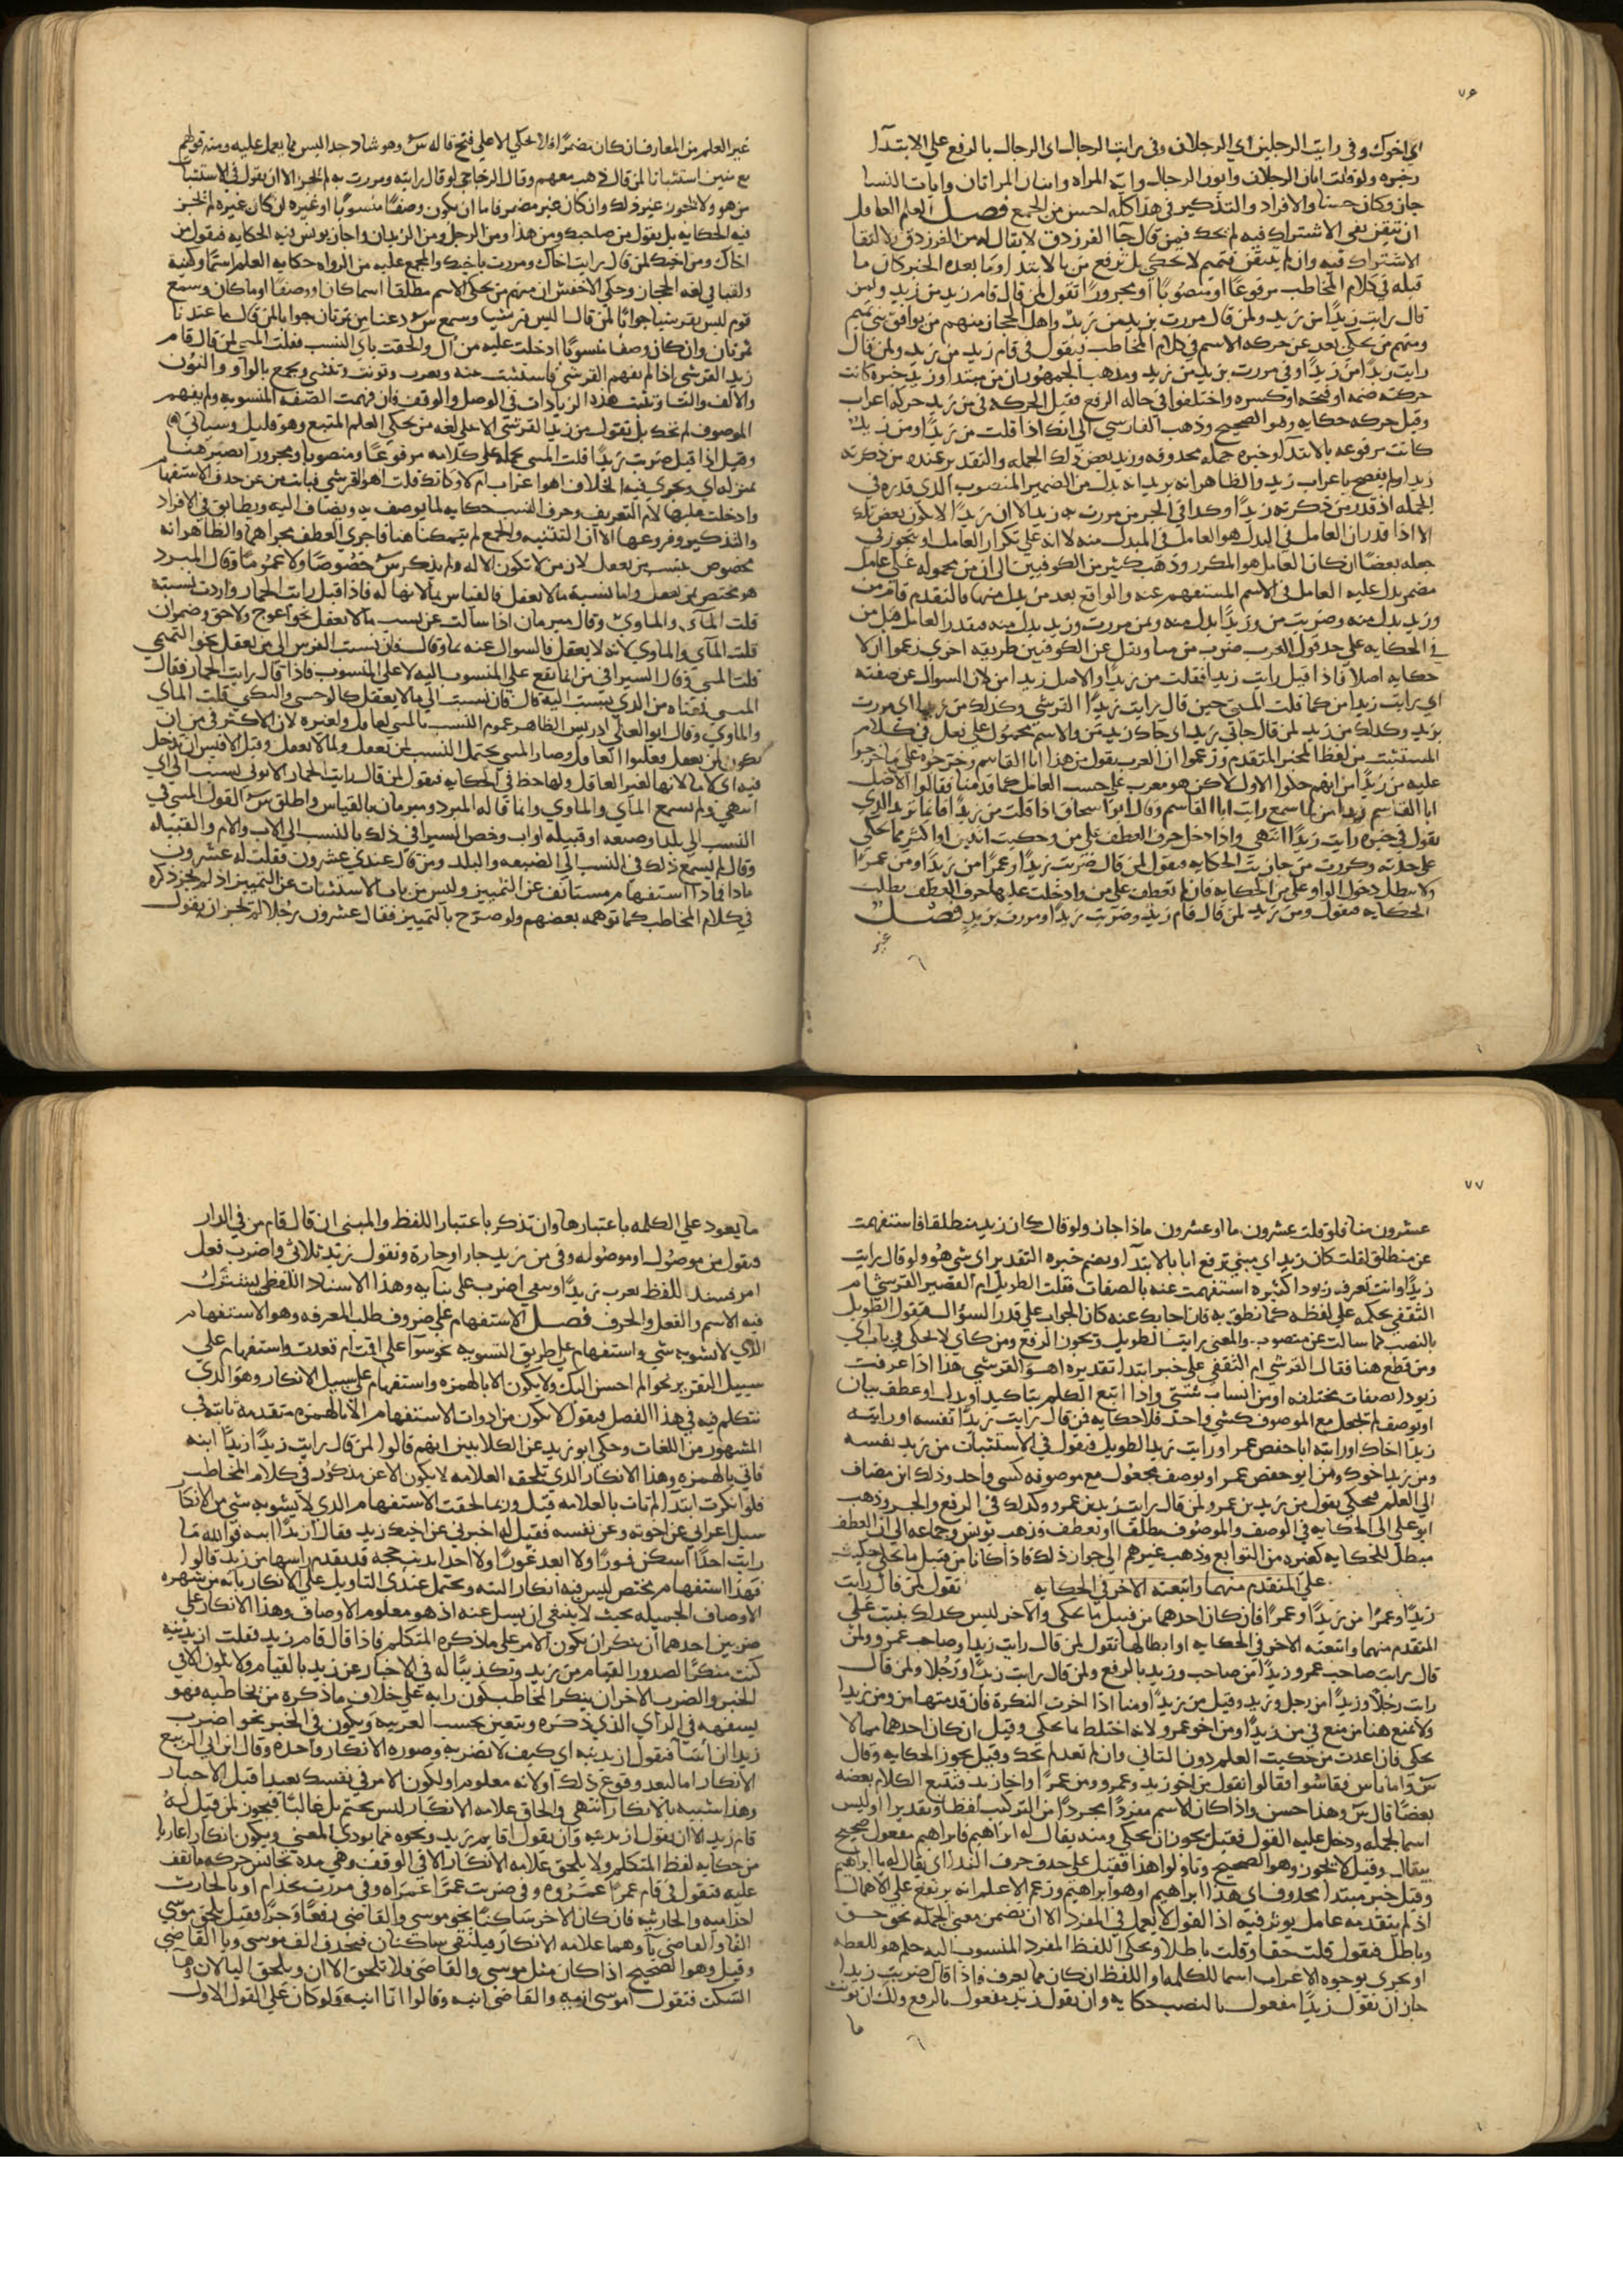 ٧٦
اي اخوك وفي رايت الرجلين اي الرجلان وفي رايت الرجال اي الرجال بالرفع علي الابتدآء
وخبره ولو قلت ايان الرجلان وايون الرجال وايه المراه وايتان المراتان وايات النسا
جاز وكان حسنا والافراد والتذكير في هذا كله احسن من الجمع فصل العلم العاقل
ان تيقن نفي الاشتراك فيه لم يحك فيمن قال جا الفرزدق لا يقال له من الفرزدق بلا لانتفا
الاشتراك فيه وان لم يتيقن فتميم لا تحكي بل ترفع من بالابتدا وما بعده الخبر كان ما
قبله في كلام المخاطب مرفوعا او منصوبا او مجرورا تقول لمن قال قام زيد من زيد ولمن
قال رايت زيدا من زيد ولمن قال مررت بزيد من زيد واهل الحجاز منهم من يوافق بني تميم
ومنهم من يحكي بعد من حركه الاسم في كلام المخاطب فيقول في قام زيد من زيد ولمن قال
رايت زيدا من زيدا وفي مررت بزيد من زيد ومذهب الجمهور ان من مبتدا وزيد خبره كانت
حركته ضمه او فتحه او كسره واختلفوا في حاله الرفع فقيل الحركه في من زيد حركه اعراب
وقيل حركه حكايه وهو الصحيح وذهب الفارسي الي انك اذا قلت من زيدا ومن زيد
كانت مرفوعه بالابتدا وخبره جمله محذوفه وزيد بعض تلك الجمله والتقدير عنده من ذكرته
زيدا ولم يفصح باعراب زيد والظاهر انه يريد انه بدل من الضمير المنصوب الذي قدره في
الجمله اذ قدر من ذكرته زيدا وكذا في الجر من مررت به زيد الا ان زيدا لا يكون بعض تلك
الا اذا قدر ان العامل في البدل هو العامل في المبدل منه لا انه علي تكرار العامل او يتجوز في
جعله بعضا ان كان العامل هو المكرر وذهب كثير من الكوفيين الي ان من محموله علي عامل
مضمر يدل عليه العامل في الاسم المستفهم عنه والواقع بعد من بدل منها فالتقدير قام من
وزيد بدل منه وضربت من وزيدا بدل منه وبمن مررت وزيد بدل منه فيقدر العامل قبل من
في الحكايه علي حد قول العرب ضرب من منا ونقل عن الكوفيين طريقه اخري زعموا ان لا
حكايه اصلا فاذا قيل رايت زيدا فقلت من زيدا والاصل زيدا من لان السوال عن صفته
اي رايت زيدا من كما قلت المني حين قال رايت زيدا القرشي وكذلك من زيد اي مررت
بزيد وكذلك من زيد لمن قال جاني زيد اي جاك زيد من والاسم محمول علي فعل في كلام
المستثبت من لفظ المخبر المتقدم وزعموا ان العرب يقول من هذا ابا القاسم وخرجوه علي ما خرجوا
عليه من زيدا من انهم حذفوا الاول لاكن هو معرب علي حسب العامل كما قدمنا فقالوا الاصل
ابا القاسم زيدا من لما سمع رايت ابا القاسم وقال ابو اسحاق اذا قلت من زيدا فانما تريد الذي
تقول في خبره رايت زيدا انتهي واذا دخل حرف العطف علي من وحكيت اثنين او اكثر مما يحكي
علي حدته وكررت من جازت الحكايه فتقول لمن قال ضربت زيدا وعمرا من زيدا ومن عمرا
ولا يبطل دخول الواو علي من الحكايه فان لم تعطف علي من وادخلت عليها حرف العطف بطلت
الحكايه فتقول ومن زيد لمن قال قام زيد وضربت زيدا ومررت بزيد فصل
غير
غير العلم من المعارف ان كان مضمرا فلا يحكي الا علي فتح قاله س وهو شاذ جدا ليس مما يعمل عليه ومنه قولهم
مع منين استثباتا لمن قال ذهب معهم وقال الزجاجي لو قال رايته ومررت به لم يجز الا ان يقول في الاستثبات
من هو ولا يجوز غير ذلك وان كان غير مضمر فاما ان يكون وصفا منسوبا او غيره ان كان غيره لم يجز
فيه الحكايه بل يقول من صاحبك ومن هذا ومن الرجل ومن الزيدان واجاز يونس فيه الحكايه فيقول من
اخاك ومن اخيك لمن قال رايت اخاك ومررت باخيك والمجمع عليه من الرواه حكايه العلم اسما وكنية
ولقبا في لغه الحجاز وحكي الاخفش ان منهم من يحكي الاسم مطلقا اسما كان او وصفا او ما كان وسمع
قوم ليس بقرشيا جوابا لمن قال اليس قرشيا وسمع س دعنا من تمرتان جوابا لمن قال ما عندنا
تمرتان وان كان وصفا منسوبا ادخلت عليه من ال والحقت ياي النسب فقلت المني لمن قال قام
زيد القرشي اذا لم يفهم القرشي فاستثبت عنه ويعرب وتونث وتثني ويجمع بالواو والنون
والالف والتا وتثبت هذه الزيادات في الوصل والوقف فان فهمت الصفه المنسوبه ولم يفهم
الموصوف لم تحك بل تقول من زيد القرشي الا علي لغه من يحكي العلم المتبع وهو قليل وسياتي
وقيل اذا قيل ضربت زيدا قلت المني تحمله علي كلامه مرفوعا ومنصوبا ومجرورا تصير هنا
بمنزله اي ويجري فيه الخلاف اهو اعراب ام لا وكانك قلت اهو القرشي فنابت من عن حرف الاستفهام
وادخلت عليها لام التعريف وحرف النسب حكايه لما يوصف به ويضاف اليه ويطابق في الافراد
والتذكير وفروعها الا ان التثنيه والجمع لم يتمكنا هنا فاجري العطف مجراهما والظاهر انه
مخصوص بنسب من يعقل لان من لا تكون الا له ولم يذكر س خصوصا ولا عموما وقال المبرد
هو مختص بمن يعقل واما نسبه ما لا يعقل فالقياس بما لانها له فاذا قيل رايت الحمار واردت نسبته
قلت المآي والماوي وقال مبرمان اذا سالت عن نسب ما لا يعقل نحو اعوج ولاحق وضمران
قلت المآي والماوي لانه لا يعقل فالسوال عنه بما وقال فان نسبت الفرس الي من يعقل نحو التميمي
قلت المني وقال السيرافي من انما تقع علي المنسوب اليه لا علي المنسوب فاذا قال رايت الحمار فقال
المني فمعناه من الذي ينسب اليه قال فان نسبت الي ما لا يعقل كالوحسي والنكي قلت الماي
والماوي وقال ابو العلي ادريس الظاهر عموم النسب بالمني لعاقل ولغيره لان الاكثر في من ان
تكون لمن يعقل وغلبوا العاقل وصار المني يحتمل النسب لمن يعقل ولما لا يعقل وقيل الاقيس ان يدخل
فيه اي لا ما لانها لغير العاقل ولها حظ في الحكايه فيقول لمن قال رايت الحمار الايوني بنسب الي اي
انتهي ولم يسمع المآي والماوي وانما قاله المبرد ومبرمان بالقياس واطلق س القول المني في
النسب الي بلد او صنعه او قبيله او اب وخص السيرافي ذلك بالنسب الي الاب والام والقبيله
وقال لم يسمع ذلك في النسب الي الضيعه والبلد ومن قال عندي عشرون فقلت له عشرون
ماذا فماذا استفهام مستانف عن التمييز وليس من باب الاستثبات عن التمييز اذ لم يجز ذكره
في كلام المخاطب كما توهمه بعضهم ولو صرح بالتمييز فقال عشرون رجلا لم يجز ان يقول
٧٧
عشرون منا فلو قلت عشرون ما او عشرون ماذا جاز ولو قال كان زيد منطلقا فاستفهمت
عن منطلق لقلت كان زيد اي مبني ترفع ايا بالابتدآ ويضم خبره التقدير اي شي هو ولو قال رايت
زيدا وانت تعرف زيودا كثيره استفهمت عنه بالصفات فقلت الطويل ام القصير القرشي ام
الثقفي بحكمه علي لفظه كما نطق به فان اجابك عنه كان الجواب علي قدر السؤال فيقول الطويل
بالنصب كما سالت عن منصوب والمعني رايت الطويل ويجوز الرفع ومن كاي لا يحكي في باب اي
ومن قطع هنا فقال القرشي ام الثقفي علي خبر ابتدا تقديره اهو القرشي هذا اذا عرفت
زيودا بصفات مختلفه او من انسان مثني واذا اتبع العلم بتاكيد او بدل او عطف بيان
او بوصف لم تجعل مع الموصوف كشي واحد فلا حكايه فمن قال رايت زيدا نفسه او رايت
زيدا اخاك او رايت ابا حفص عمر او رايت زيدا الطويل فيقول في الاستثبات من زيد نفسه
ومن زيد اخوك ومن ابو حفص عمر او بوصف مجعول مع موصوفه كشي واحد وذلك ابن مضاف
الي العلم فيحكي يقول من زيد بن عمرو لمن قال رايت زيد بن عمرو وكذلك في الرفع والجر وذهب
ابو علي الي الحكايه في الوصف والموصوف مطلقا او بعطف فذهب يونس وجماعه الي ان العطف
مبطل للحكايه كغيره من التوابع وذهب غيرهم الي جواز ذلك فاذا كانا من قبيل ما يحكي حكيت
علي المتقدم منهما واتبعته الاخر في الحكايه تقول لمن قال رايت
زيدا وعمرا من زيدا وعمرا فان كان احدهما من قبيل ما يحكي والاخر ليس كذلك بنيت علي
المتقدم منهما واتبعته الاخر في الحكايه او ابطالها تقول لمن قال رايت زيدا وصاحب عمرو ولمن
قال رايت صاحب عمرو وزيدا من صاحب وزيد بالرفع ولمن قال رايت زيدا ورجلا ولمن قال
رايت رجلا وزيدا من رجل وزيد وقيل من زيدا ومنا اذا اخرت النكرة فان قدمتها من ومن زيدا
ولا يمنع هنا من منع في من زيدا ومن اخو عمرو لانه اختلط ما يحكي وقيل ان كان احدهما مما لا
يحكي فان اعدت من حكيت العلم دون الثاني وان لم تعد لم تحك وقيل يجوز الحكايه وقال
س واما ناس فقاسوا فقالوا تقول من اخو زيد وعمرو ومن عمرا واخا زيد فتتبع الكلام بعضه
بعضا قال س وهذا حسن واذا كان الاسم مفردا مجردا من التركيب لفظا وتقديرا وليس
اسما لجمله ودخل عليه القول فقيل يجوز ان يحكي ومنه يقال له ابراهيم فابراهيم مفعول صحيح
بيقال وقيل لا يجوز وهو الصحيح وتاولوا هذا فقيل علي حذف حرف الندا اي يقال له يا ابراهيم
وقيل خبر مبتدا محذوف اي هذا ابراهيم او هو ابراهيم وزعم الاعلم انه يرتفع علي الاهمال
اذ لم يتقدمه عامل يوثر فيه اذ القول لا يعمل في المفرد الا ان تضمن معني الجمله نحو حق
وباطل فيقول قلت حقا وقلت باطلا ويحكي اللفظ المفرد المنسوب اليه حكم هو للفظه
او يجري بوجوه الاعراب اسما للكلمه او اللفظ ان كان مما يعرف فاذا قال ضربت زيدا
جاز ان يقول زيدا مفعول بالنصب حكايه وان يقول زيد مفعول بالرفع ولك ان تونث
ما
ما يعود علي الكلمه باعتبارها وان تذكر باعتبار اللفظ والمبني ان قال قام من في الدار
فيقول من موصول او موصوله وفي من زيد جار او جارة وتقول زيد ثلاثي واضرب فعل
امر فيسند اللفظ يعرب زيدا وسمي اضرب علي بنايه وهذا الاسناد اللفظي يشترك
فيه الاسم والفعل والحرف فصل الاستفهام علي ضروف طلب المعرفه وهو الاستفهام
الذي لا يشوبه شي واستفهام علي طريق التسويه نحو سوآ علي اقمت ام قعدت واستفهام علي
سبيل التقرير نحو الم احسن اليك ولا يكون الا بالهمزه واستفهام علي سبيل الانكار وهو الذي
نتكلم فيه في هذا الفصل فيقول لا يكون من ادوات الاستفهام الا بالهمزه متقدمة
المشهور من اللغات وحكي ابو زيد عن الكلابيين انهم قالوا لمن قال رايت زيدا ازيدا ابنه
فاتي بالهمزه وهذا الانكار الذي تلحقه العلامه لا يكون الا عن مذكور في كلام المخاطب
فلو انكرت ابتدآ لم تات بالعلامه قيل وربما لحقت الاستفهام الذي لا يشوبه شي من الانكار
سيل اعرابي عن اخوته وعن نفسه فقيل له اخبرني عن اخيك زيد فقال ازيدا ابنه فوالله ما
رايت احدا اسكن فورا ولا ابعد غورا ولا اخذ لذنب حجه قد تقدم راسها من زيد قالوا
فهذا استفهام مختص ليس فيه انكار البته ويحتمل عندي التاويل علي الانكار بانه من شهره
الاوصاف الجميله بحيث لا ينبغي ان يسل عنه اذ هو معلوم الاوصاف وهذا الانكار علي
ضربين احدهما ان ينكر ان يكون الامر علي ما ذكره المتكلم فاذا قال قام زيد فقلت ازيدنيه
كنت منكرا لصدور القيام من زيد وتكذيبا له في الاخبار عن زيد بالقيام ولا يكون الا في
الخبر والضرب الاخر ان ينكر المخاطب كون رايه علي خلاف ما ذكره من يخاطبه فهو
يسفهه في الراي الذي ذكره ويتعين بحسب العربيه ويكون في الخبر نحو اضرب
زيدا ان اسا فتقول ازيدنيه اي كيف لا تضربه وصوره الانكار واحدة وقال ابن ابي الربيع
الانكار اما لبعد وقوع ذلك او لانه معلوم او لكون الامر في نفسك بعيدا قبل الاخبار
وهذا شبيه بالانكار انتهي والحاق علامه الانكار ليس بحتم بل غالبا فيجوز لمن قيل له
قام زيد الا ان يقول ازيدنيه وان يقول اقايم زيد ونحوه مما يودي المعني ويكون انكارا عاريا
من حكايه لفظ المتكلم ولا يلحق علامه الانكار الا في الوقف وهي مده تجانس حركه ما تقف
عليه فتقول في قام عمر اعمروه وفي ضربت عمر اعمراه وفي مررت بحذام او بالحارث
احذاميه والحارثيه فان كان الاخر ساكنا نحو موسي والقاضي رفعا وجرا فقيل يلحق موسي
الفا والقاضي يآ وهما علامه الانكار فيلتقي ساكنان فيحذف الف موسي ويا القاضي
وقيل وهو الصحيح اذا كان مثل موسي والقاضي فلا تلحق الا ان ويلحق اليا لان وها
السكت فتقول اموسي انيه والقاضي انيه وقالوا اانا انيه ولو كان علي القول الاول